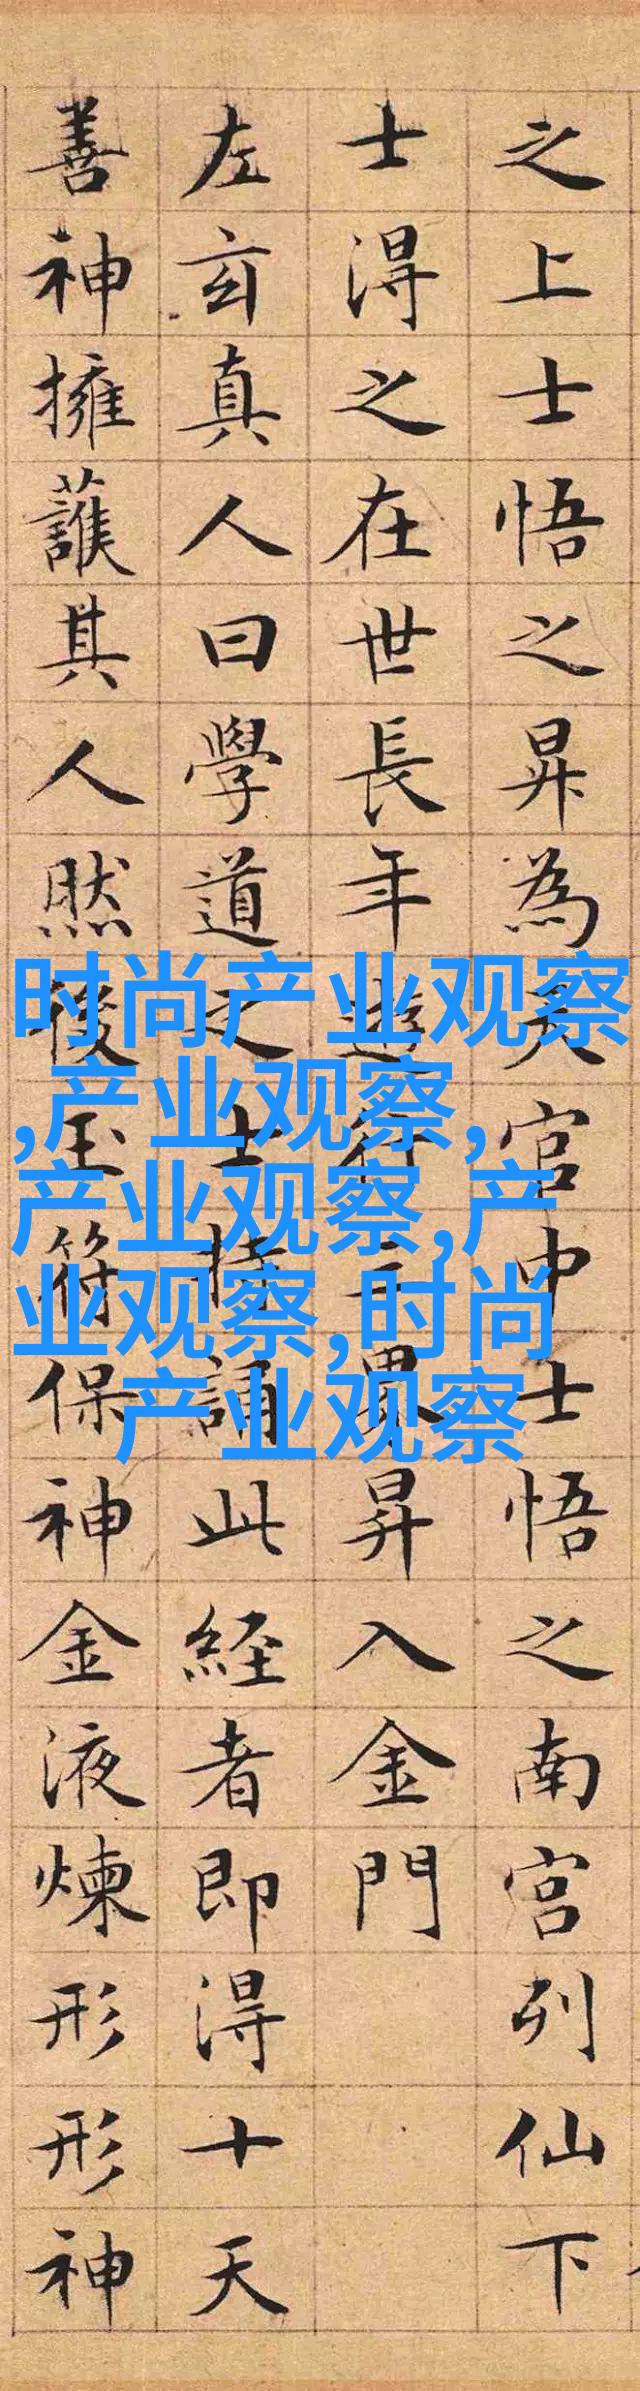 之上士悟之昇為天官中士悟之南宮列仙下
士得之在世長年遊行三界昇入金門
左玄真人曰學道之士持誦此經者即得十天
善神擁護其人然後玉符保神金液煉形形神
时尚产业观察
,产业观察,
产业观察,产
业观察,时尚
产业观察